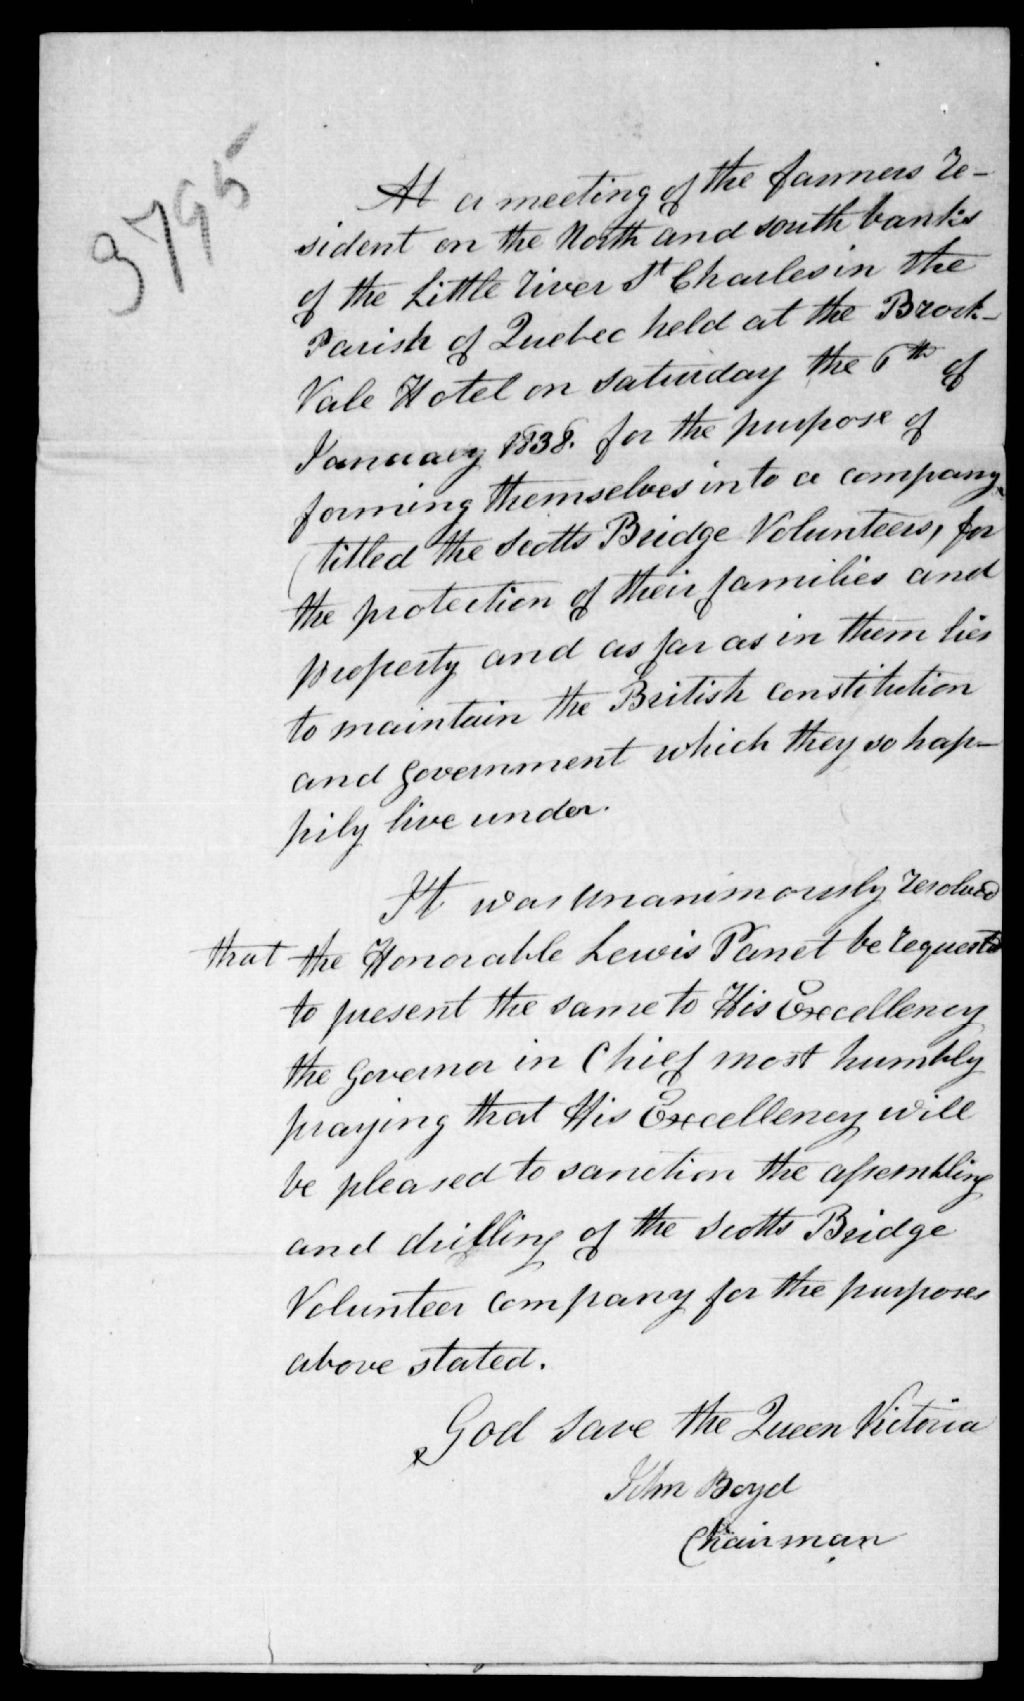 3795
At a meeting of the farmers re-
sident on the North and south banks
of the Little river St Charles in the
Parish of Quebec held at the Brook-
Vale Hotel on saturday the 6th of
January 1838. for the purpose of
forming themselves into a company
(titled the Scotts Bridge Volunteers, for
the protection of their families and
property and as far as in them lies
to maintain the British constitution
and government which they so hap-
pily live under.
It was unanimously resolved
that the Honorable Lewis Panet be requested
to present the same to His Excellency
the Governor in Chief most humbly
praying that His Excellency will
be pleased to sanction the assembling
and drilling of the Scotts Bridge
Volunteer company for the purposes
above stated.
God save the Queen Victoria
John Boyd
Chairman